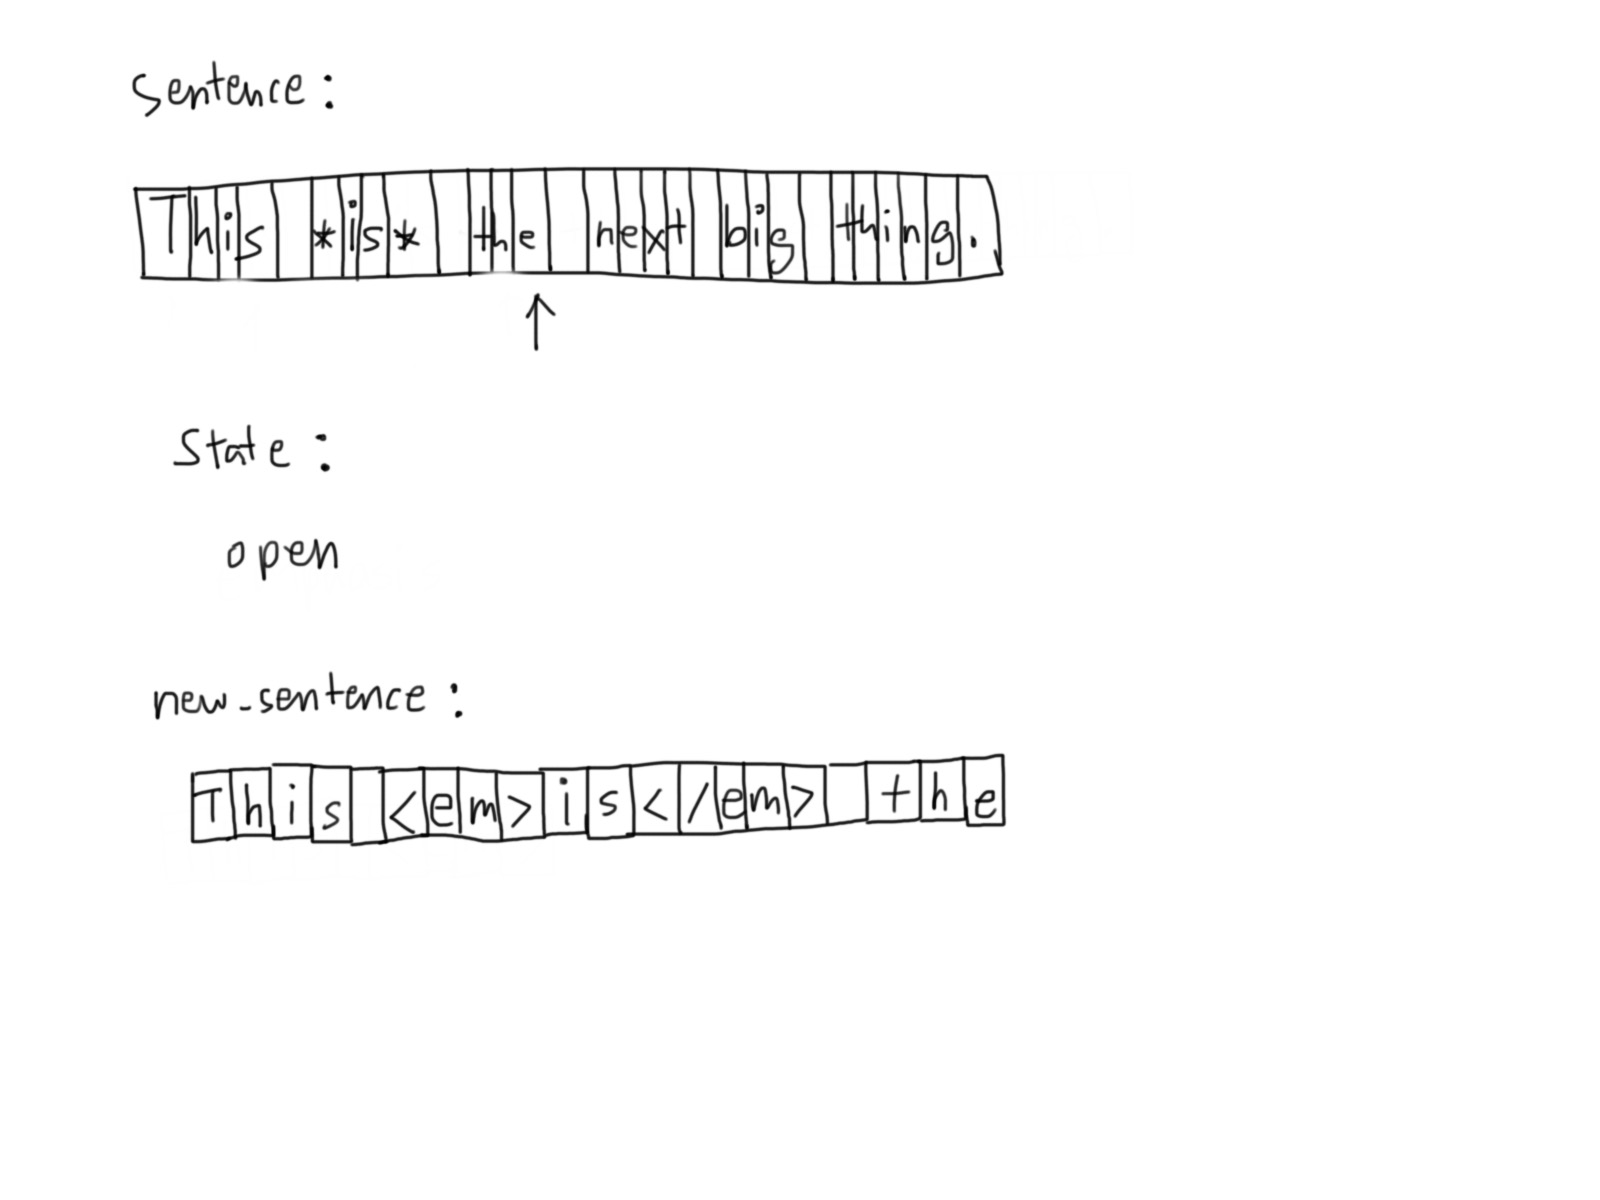 Sentence:
This *is* the next big thing.
↑
State:
open
new_sentence:
This <em>is</em> the